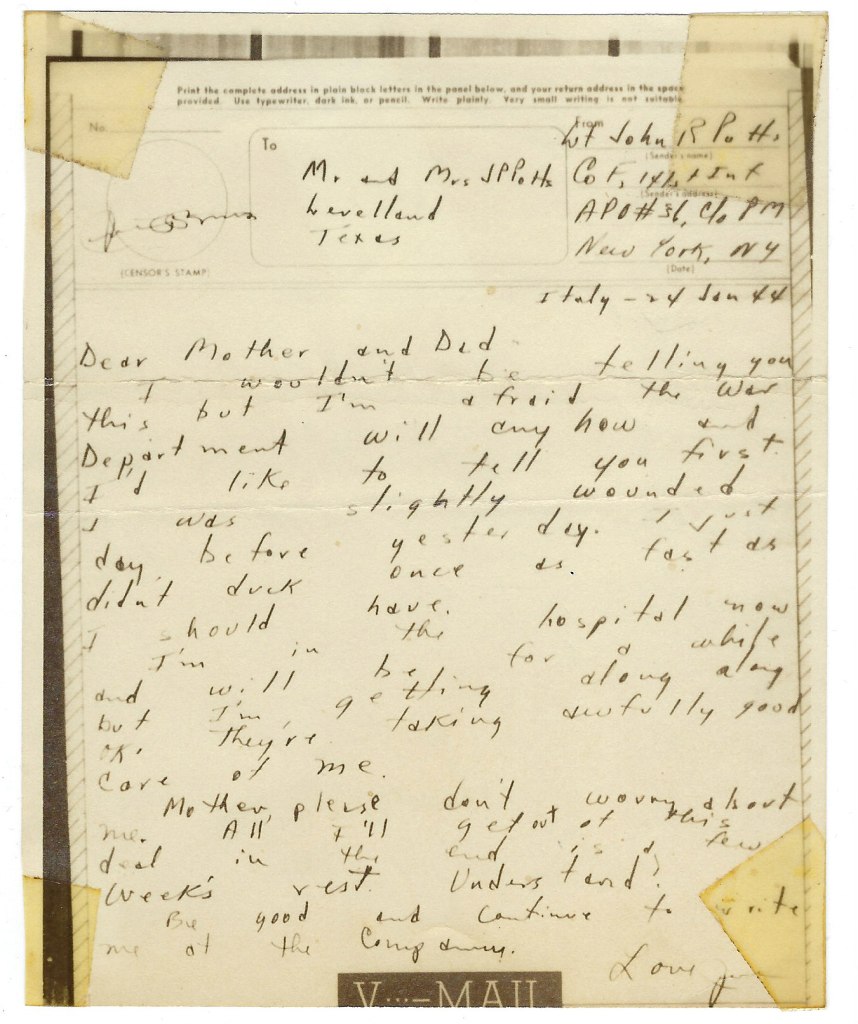 Print the complete address in plain black letters in the panel below, and your return address in the space
provided. Use typewriter, dark ink, or pencil. Write plainly. Very small writing is not suitable.
No.
(CENSOR'S STAMP)
To
Mr and Mrs J P Potts
Levelland
Texas
From
Lt John R Potts
(Sender's name)
Co F, 141st Inf
(Sender's address)
APO # 36, c/o PM
New York, NY
(Date)
Italy - 24 Jan 44
Dear Mother and Dad
I wouldn't be telling you
this but I'm afraid the War
Department will anyhow and
I'd like to tell you first.
I was slightly wounded
day before yesterday. I just
didn't duck once as fast as
I should have.
I'm in the hospital now
and will be for a while
but I'm getting along along
OK. They're taking awfully good
care of me.
Mother, please don't worry about
me. All I'll get out of this
deal in the end is a few
weeks rest. Understand?
Be good and continue to write
me at the Company.
Love
V···—MAIL